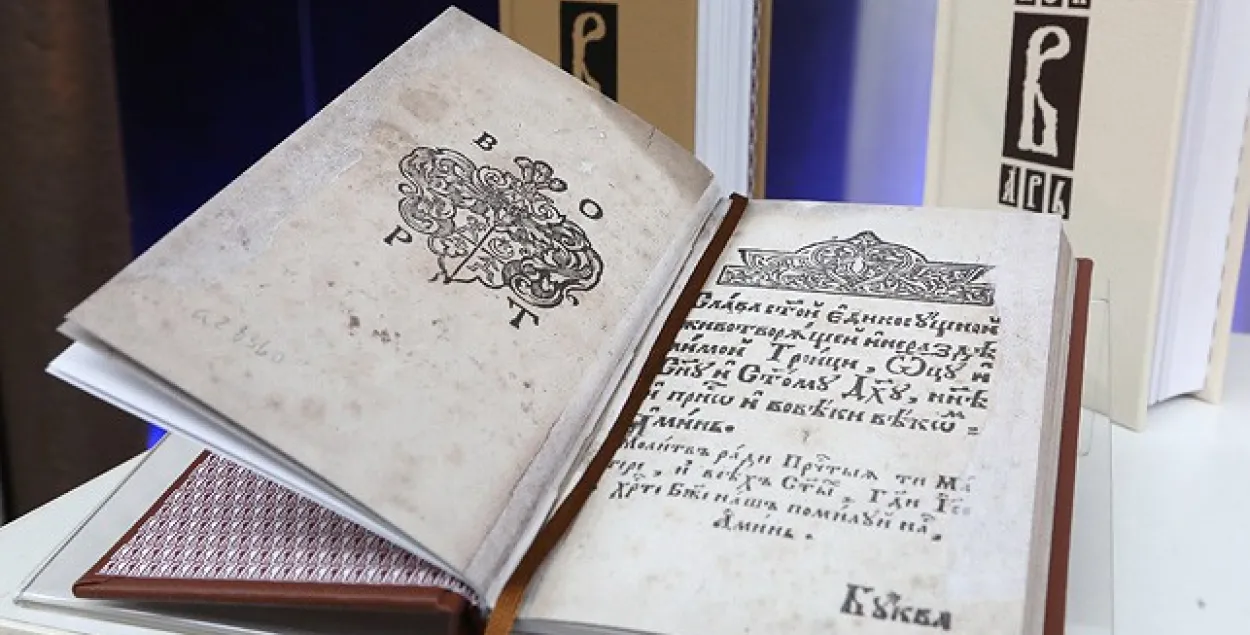 В
О
Р
Т
Сла́ва ст҃ой є҆диносꙋ́щной
животворѧ́щей и҆ нераздѣ
ли́мой Трⷪ҇ици, Ѡц҃ꙋ и҆
Сн҃ꙋ и҆ Ст҃омꙋ Дх҃ꙋ, нн҃ѣ
и҆ при́сⷩ҇ѡ и҆ во вѣ́ки вѣкѡ́ⷨ.
А҆ми́нь.
Моли́твъ ра́ди Прⷭ҇тыѧ ти Ма
тере, и҆ всѣ́хъ Ст҃ы́, Гд҃и І҆с҃е
Хрⷭ҇те Бж҃е на́шъ поми́лꙋй на́,
А҆ми́нь.
Бꙋква
АРЬ